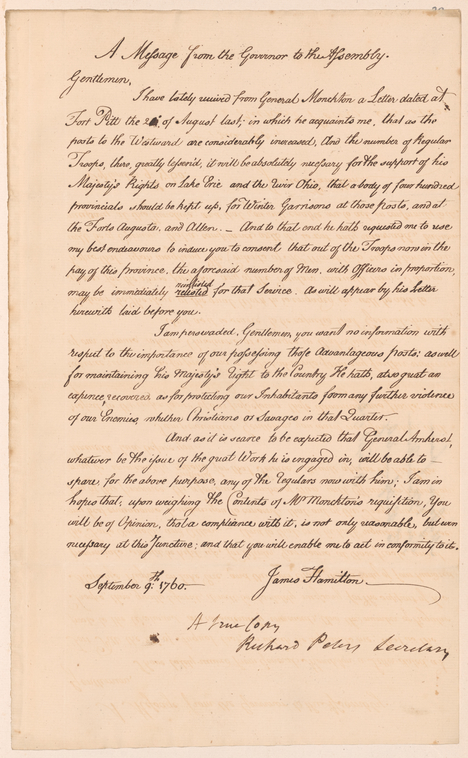 A Message from the Governor to the Assembly.
Gentlemen,
I have lately recived from General Monckton a Letter dated at
Fort Pitt the of August last; in which he acquaints me, that as the
posts to the Westward are considerably increased, And the number of Regular
Troops, there, greatly lessen'd, it will be absolutely necessary for the support of his
Majesty's Rights on Lake Erie and the River Ohio, that a body of four hundred
provincials should be kept up, for Winter Garrisons at those posts, and at
the Forts Augusta, and Allen. — And to that end he hath requested me to use
my best endeavours to induce you to consent that out of the Troops now in the
pay of this province, the aforesaid number of Men, with Officers in proportion,
reinlisted
may be immediately relisted for that Service. As will appear by his Letter
herewith laid before you.
I am perswaded, Gentlemen, you want no information with
respect to the importance of our possessing those Advantageous posts: as well
for maintaining his Majesty's Right to the Country He hath, at so great an
expence, recovered as for protecting our Inhabitants from any further violence
of our Enemies, whether Christians or Savages in that Quarter.
And as it is scarce to be expected that General Amherst,
whatever be the issue of the great Work he is engaged in, will be able to —
spare, for the above purpose, any of the Regulars now with him; I am in
hopes that, upon weighing the Contents of Mr. Monckton's requisition, You
will be of Opinion, that a compliance with it, is not only reasonable, but even
necessary at this Juncture; and that you will enable me to act in conformity to it.
September 9th. 1760. James Hamilton.
A true Copy
Richard Peters Secretary